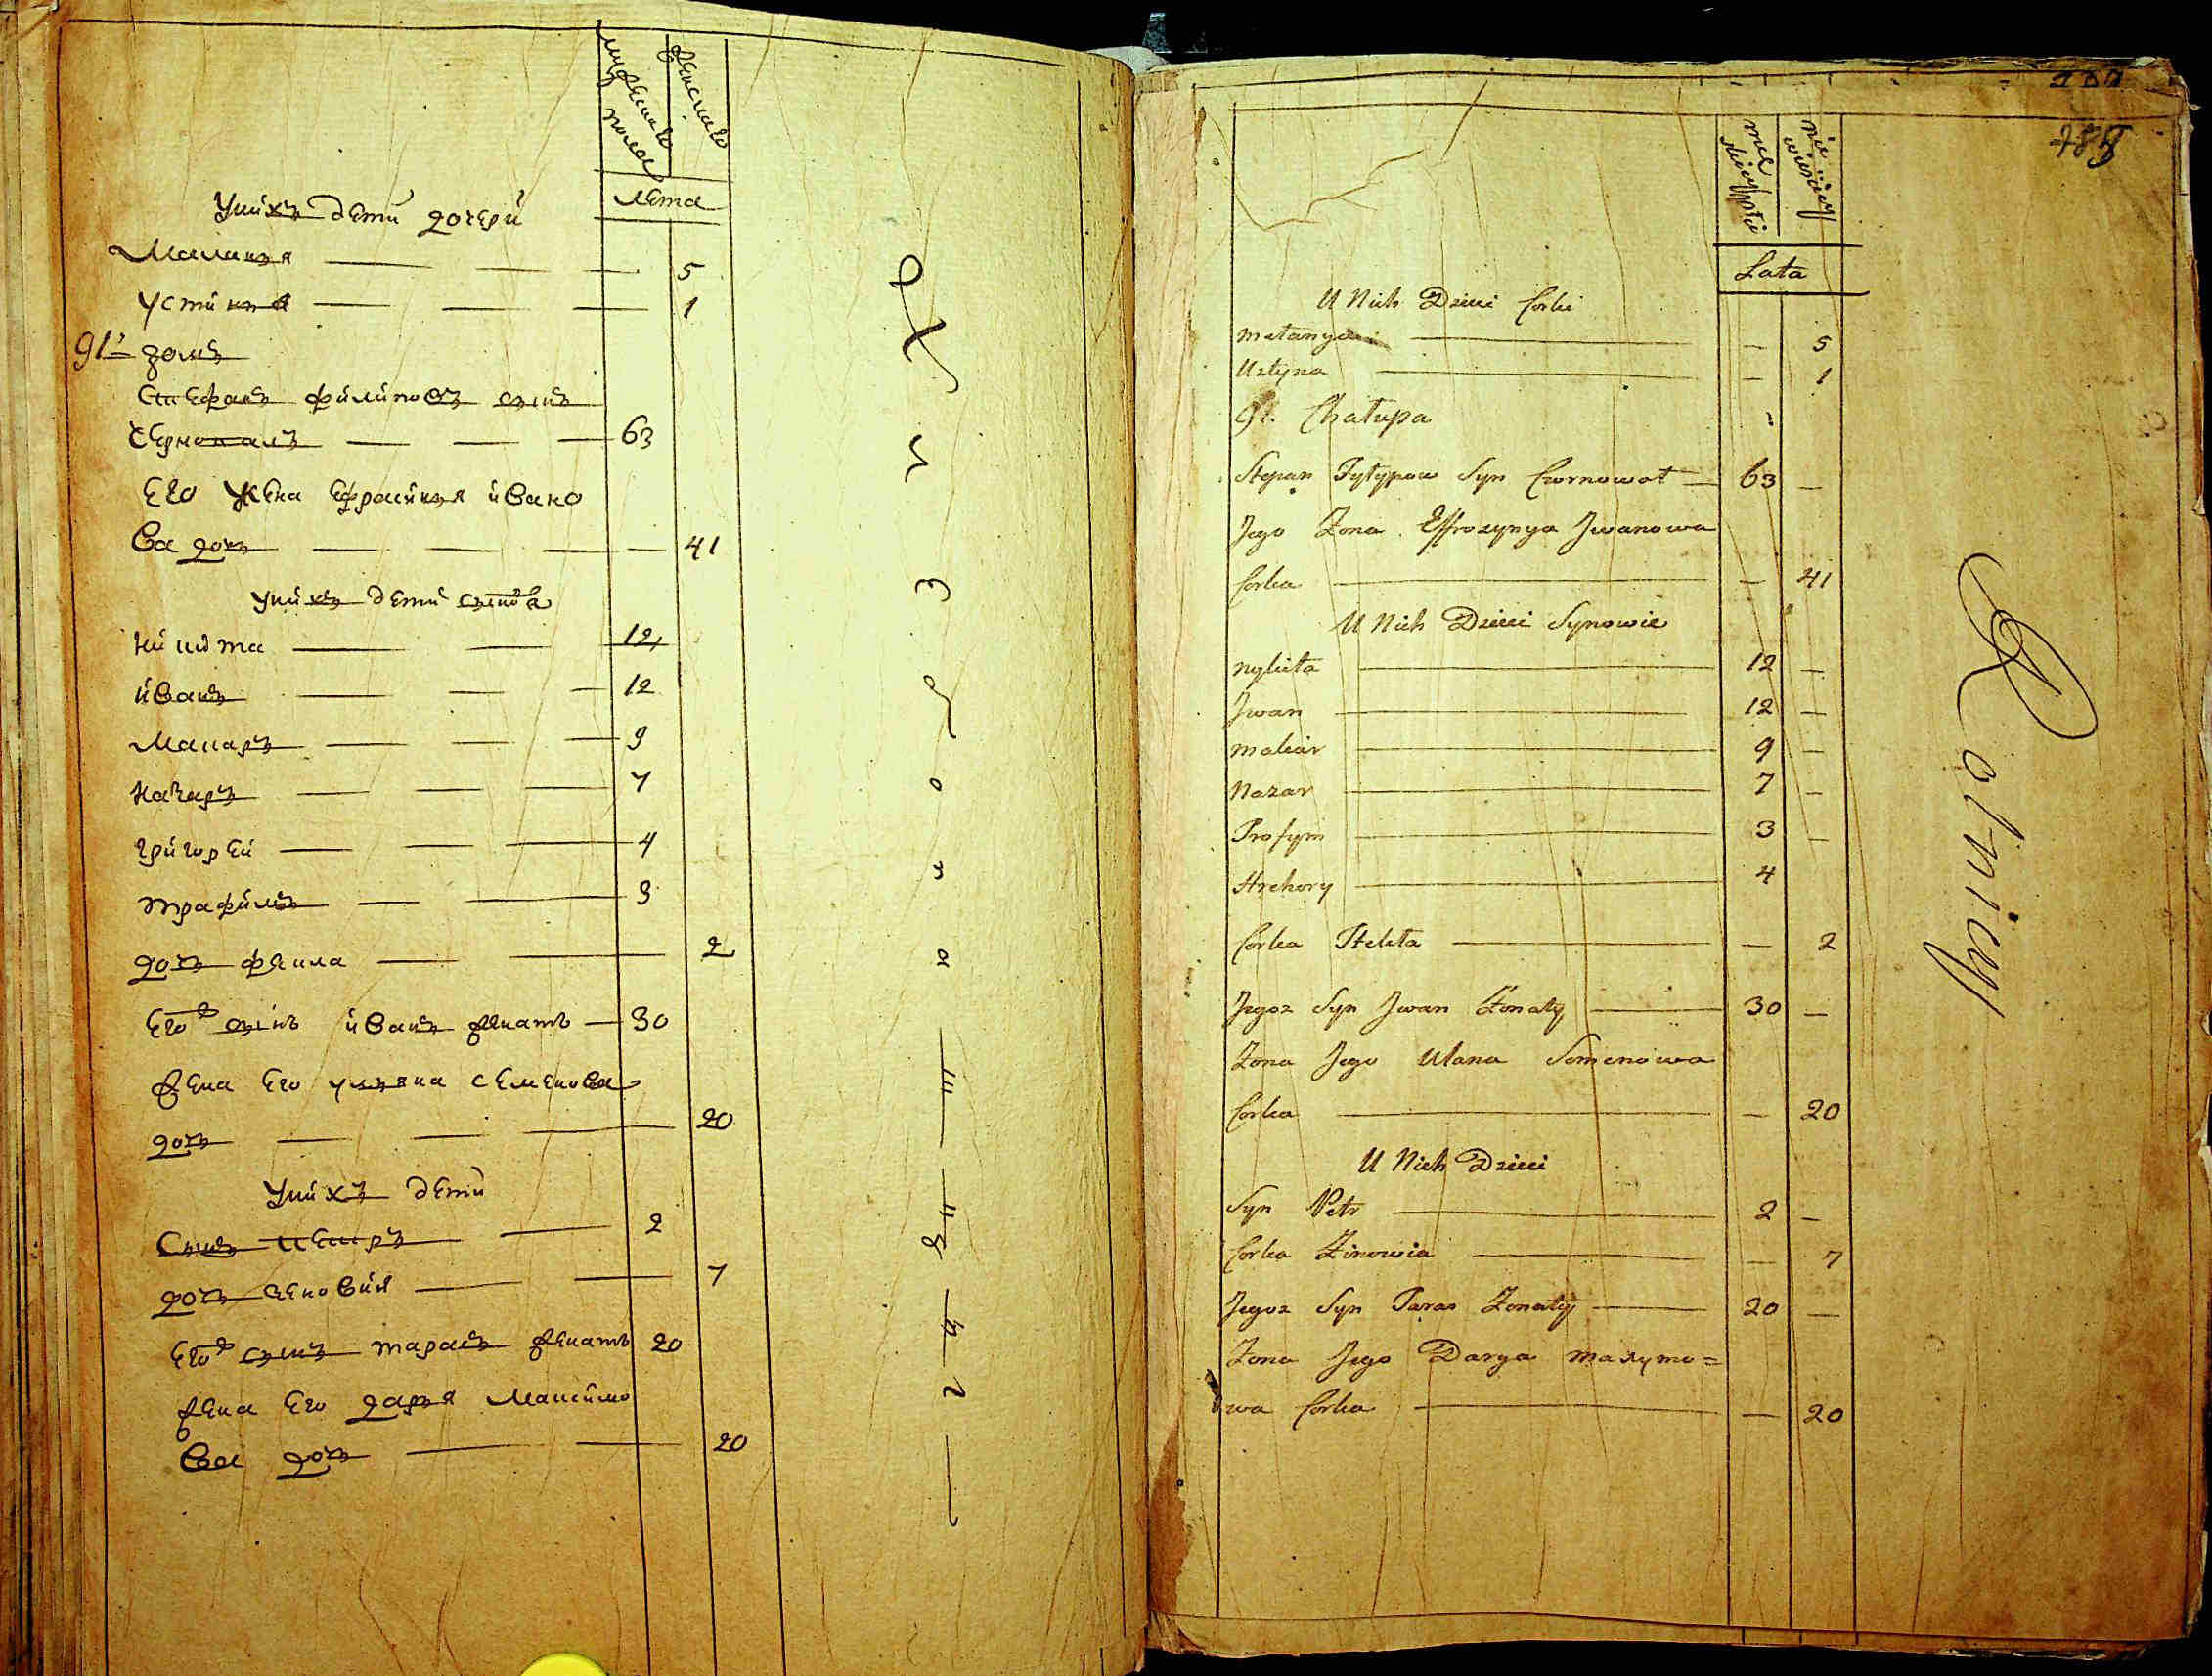 мужеска
полу
женска
лета
У нихъ дети дочери
Маланья 5
Устинья 1
91 домъ
Стефанъ Филиповъ сынъ
Чернова́лъ 63
Его жена Ефросинья Ивано
ва дочь 41
У нихъ дети сынова
Никита 12
Иванъ 12
Макаръ 9
Назаръ 7
Григорей 4
Трафимъ 3
дочь Фекла 2
Его сынъ Иванъ женатъ 30
жена его Ульяна Семенова
дочь 20
У нихъ дети
Сынъ Петръ 2
дочь Зеновия 7
Его сынъ Тарасъ женатъ 20
жена его Дарья Максимо
ва дочь 20
Lata
U Nich Dzieci Corki
Matanya — 5
Ustyna — 1
91. Chatupa
Stepan Fytypow Syn Czornowot 63 —
Jego Zona Effrozynya Jwanowa
Corka — 41
U Nich Dzieci Synowie
Nykita 12 —
Jwan 12 —
Makar 9 —
Nazar 7 —
Trofym 3 —
Hrehory 4
Corka Tekla — 2
Jegoz Syn Jwan Zonaty 30 —
Zona Jego Ulana Semenowa
Corka — 20
U Nich Dzieci
Syn Petr 2 —
Corka Zinowia — 7
Jegoz Syn Taras Zonaty 20 —
Zona Jego Darya Maxymo=
wa Corka — 20
Rolnicy